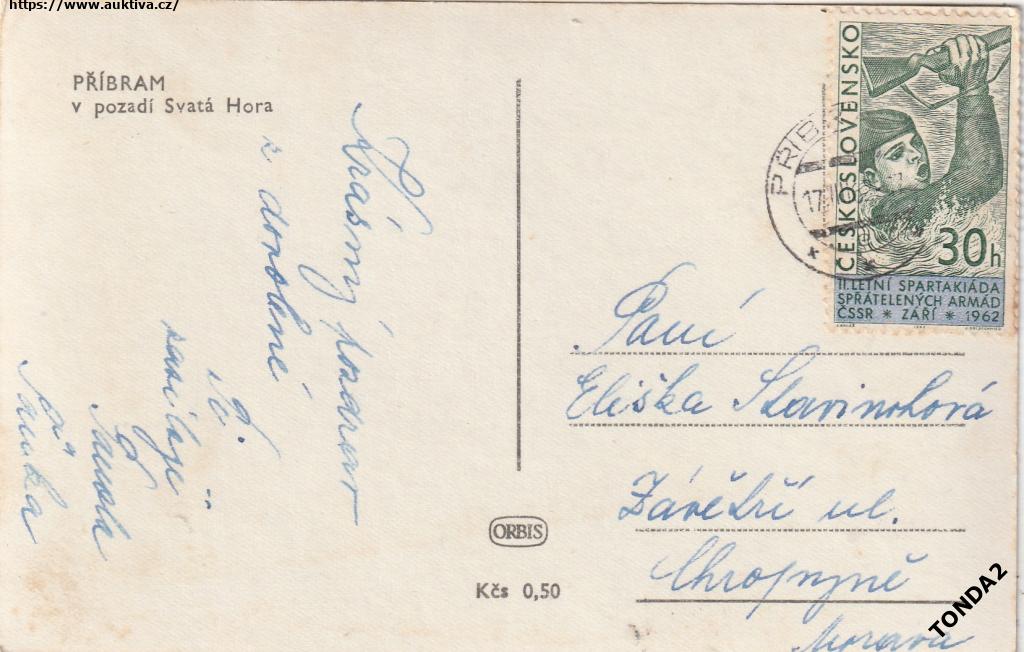 https://www.auktiva.cz/
PŘÍBRAM
v pozadí Svatá Hora
Krásný pozdrav
z dovolené
Ti
zasílají
ORBIS
Kčs 0,50
PŘÍB
17
ČESKOSLOVENSKO
30h
II. LETNÍ SPARTAKIÁDA
SPŘÁTELENÝCH ARMÁD
ČSSR * ZÁŘÍ * 1962
Paní
Eliška Stavinohová
Závětří ul.
Chropyně
Morava
TONDA2